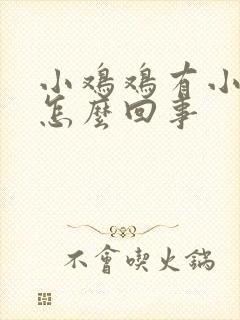 小鸡鸡有小
怎麼回事
不會喫火鍋